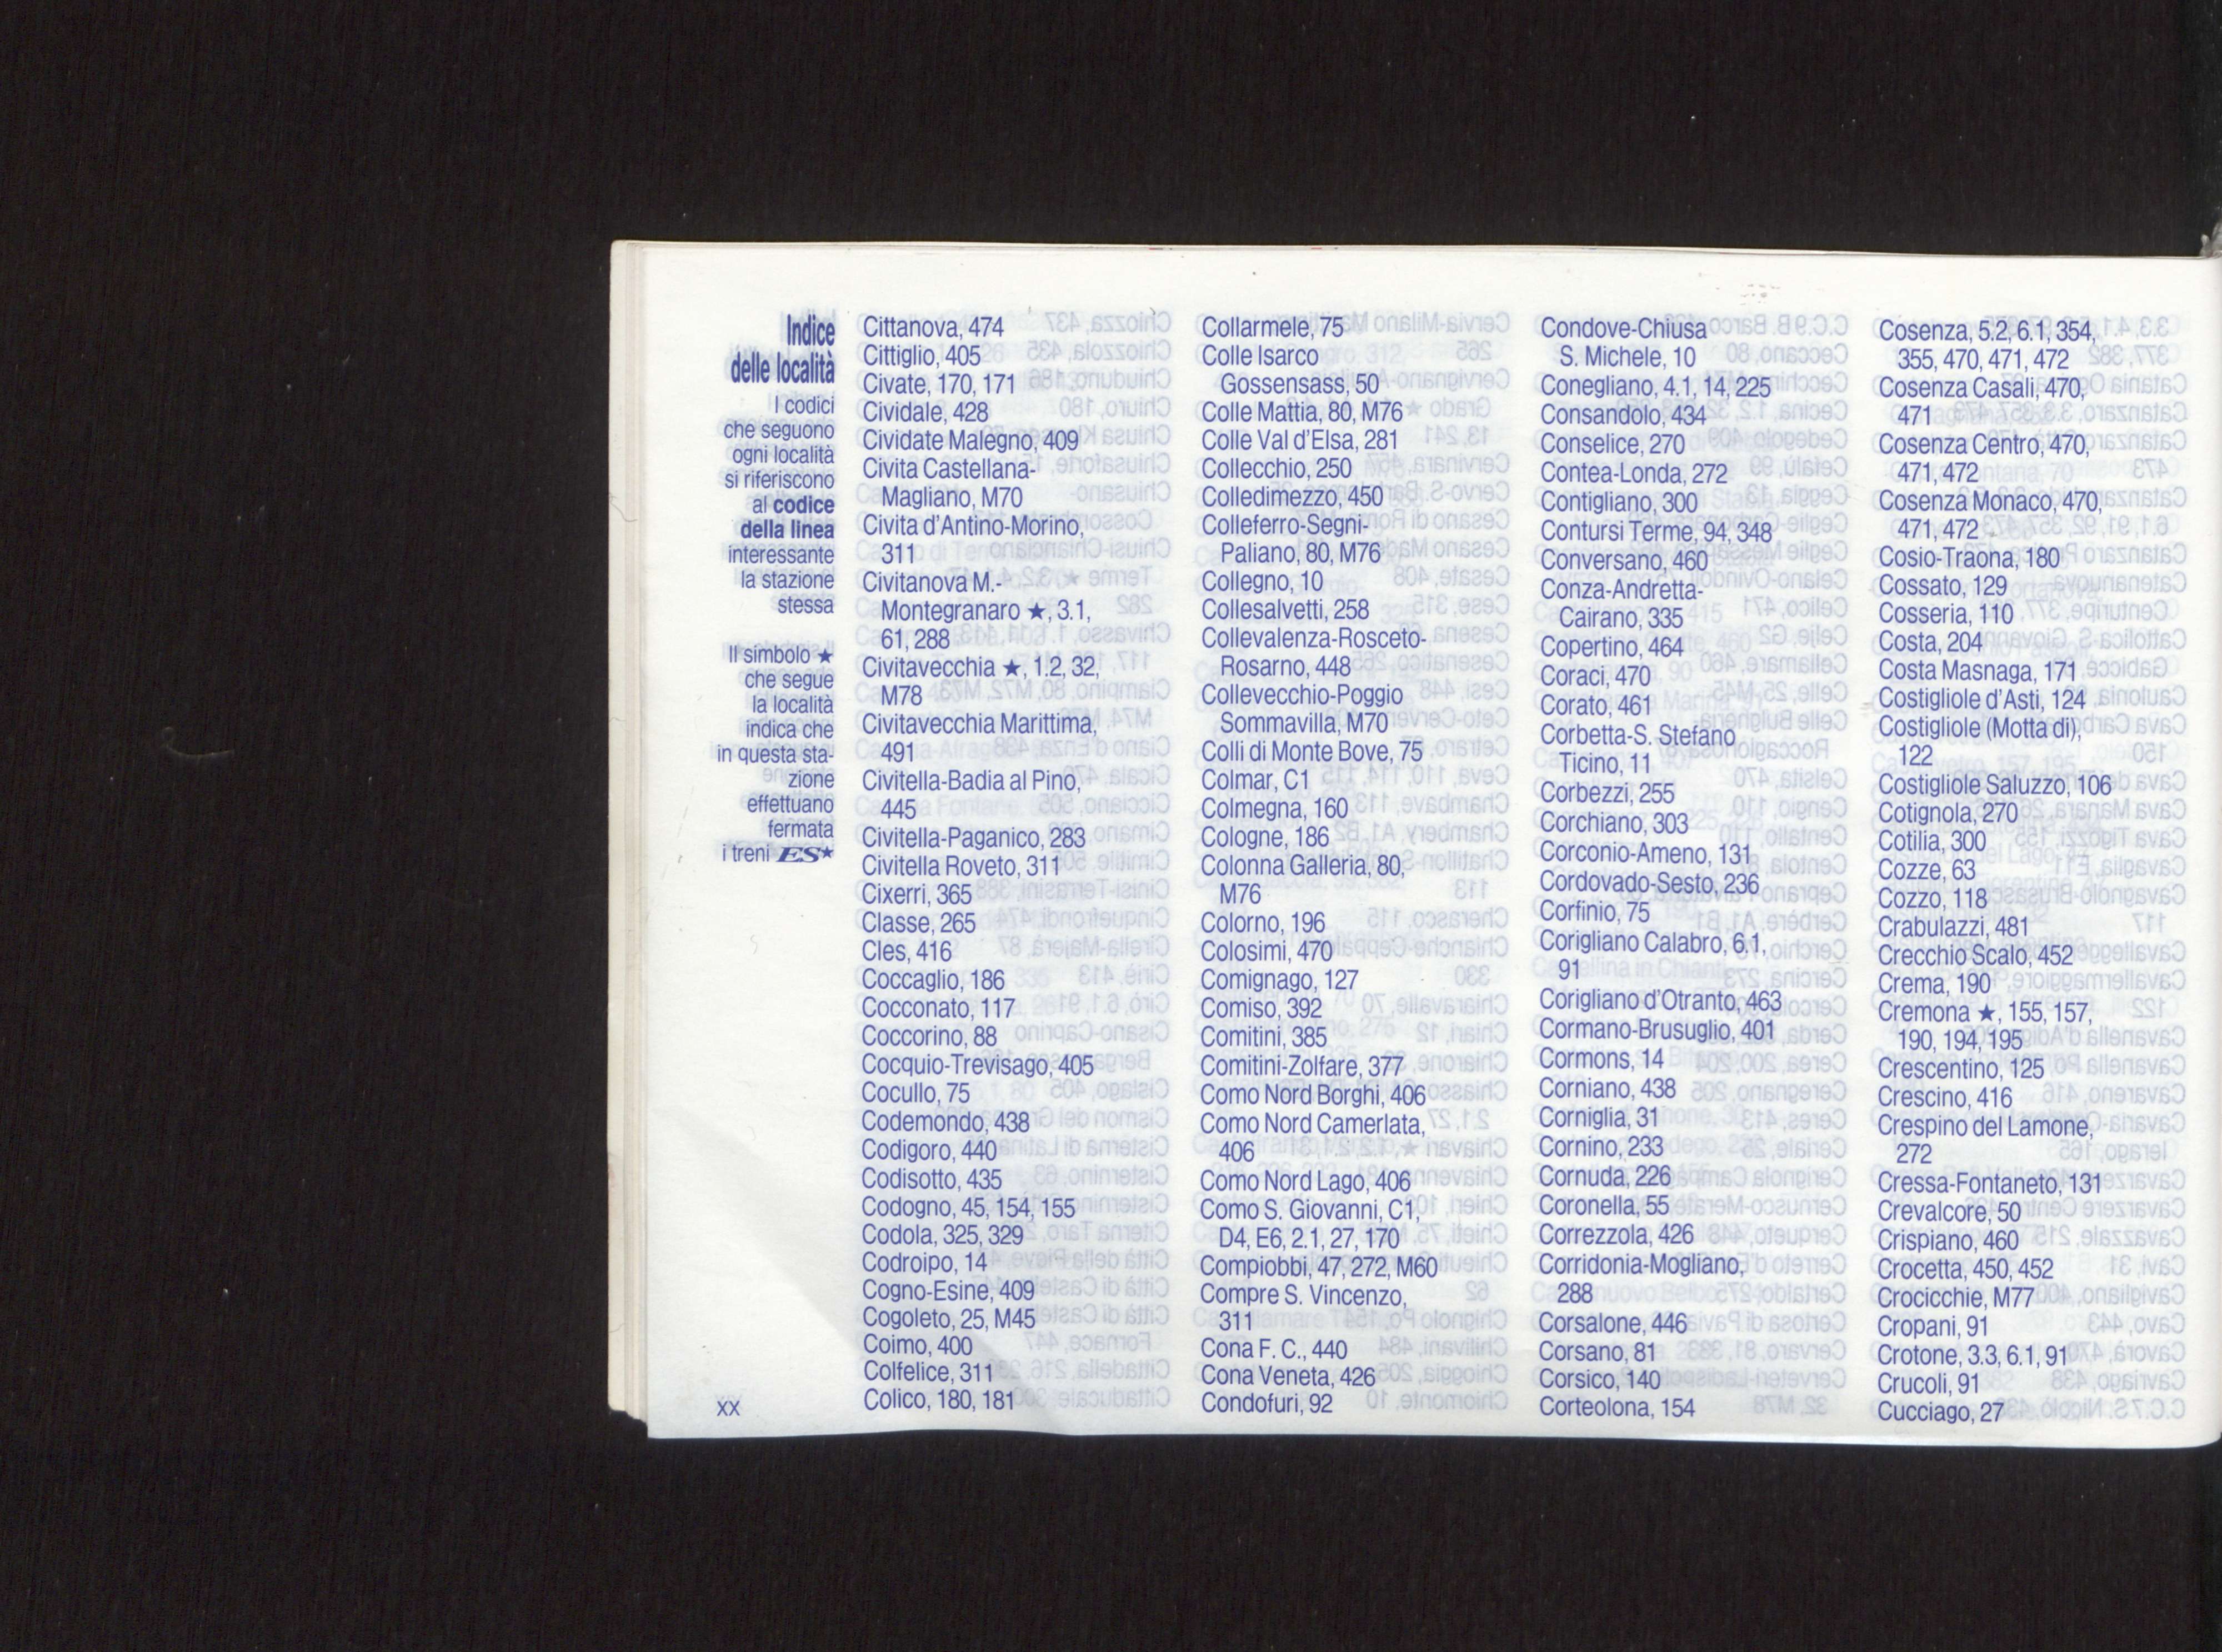 Indice
delle località
I codici
che seguono
ogni località
si riferiscono
al codice
della linea
interessante
la stazione
stessa
Il simbolo ★
che segue
la località
indica che
in questa sta-
zione
effettuano
fermata
i treni ES★
XX
Cittanova, 474
Cittiglio, 405
Civate, 170, 171
Cividale, 428
Cividate Malegno, 409
Civita Castellana-
Magliano, M70
Civita d'Antino-Morino,
311
Civitanova M.-
Montegranaro ★, 3.1,
61, 288
Civitavecchia ★, 1.2, 32,
M78
Civitavecchia Marittima,
491
Civitella-Badia al Pino,
445
Civitella-Paganico, 283
Civitella Roveto, 311
Cixerri, 365
Classe, 265
Cles, 416
Coccaglio, 186
Cocconato, 117
Coccorino, 88
Cocquio-Trevisago, 405
Cocullo, 75
Codemondo, 438
Codigoro, 440
Codisotto, 435
Codogno, 45, 154, 155
Codola, 325, 329
Codroipo, 14
Cogno-Esine, 409
Cogoleto, 25, M45
Coimo, 400
Colfelice, 311
Colico, 180, 181
Collarmele, 75
Colle Isarco
Gossensass, 50
Colle Mattia, 80, M76
Colle Val d'Elsa, 281
Collecchio, 250
Colledimezzo, 450
Colleferro-Segni-
Paliano, 80, M76
Collegno, 10
Collesalvetti, 258
Collevalenza-Rosceto-
Rosarno, 448
Collevecchio-Poggio
Sommavilla, M70
Colli di Monte Bove, 75
Colmar, C1
Colmegna, 160
Cologne, 186
Colonna Galleria, 80,
M76
Colorno, 196
Colosimi, 470
Comignago, 127
Comiso, 392
Comitini, 385
Comitini-Zolfare, 377
Como Nord Borghi, 406
Como Nord Camerlata,
406
Como Nord Lago, 406
Como S. Giovanni, C1,
D4, E6, 2.1, 27, 170
Compiobbi, 47, 272, M60
Compre S. Vincenzo,
311
Cona F. C., 440
Cona Veneta, 426
Condofuri, 92
Condove-Chiusa
S. Michele, 10
Conegliano, 4.1, 14, 225
Consandolo, 434
Conselice, 270
Contea-Londa, 272
Contigliano, 300
Contursi Terme, 94, 348
Conversano, 460
Conza-Andretta-
Cairano, 335
Copertino, 464
Coraci, 470
Corato, 461
Corbetta-S. Stefano
Ticino, 11
Corbezzi, 255
Corchiano, 303
Corconio-Ameno, 131
Cordovado-Sesto, 236
Corfinio, 75
Corigliano Calabro, 6.1,
91
Corigliano d'Otranto, 463
Cormano-Brusuglio, 401
Cormons, 14
Corniano, 438
Corniglia, 31
Cornino, 233
Cornuda, 226
Coronella, 55
Correzzola, 426
Corridonia-Mogliano,
288
Corsalone, 446
Corsano, 81
Corsico, 140
Corteolona, 154
Cosenza, 5.2, 6.1, 354,
355, 470, 471, 472
Cosenza Casali, 470,
471
Cosenza Centro, 470,
471, 472
Cosenza Monaco, 470,
471, 472
Cosio-Traona, 180
Cossato, 129
Cosseria, 110
Costa, 204
Costa Masnaga, 171
Costigliole d'Asti, 124
Costigliole (Motta di),
122
Costigliole Saluzzo, 106
Cotignola, 270
Cotilia, 300
Cozze, 63
Cozzo, 118
Crabulazzi, 481
Crecchio Scalo, 452
Crema, 190
Cremona ★, 155, 157,
190, 194, 195
Crescentino, 125
Crescino, 416
Crespino del Lamone,
272
Cressa-Fontaneto, 131
Crevalcore, 50
Crispiano, 460
Crocetta, 450, 452
Crocicchie, M77
Cropani, 91
Crotone, 3.3, 6.1, 91
Crucoli, 91
Cucciago, 27